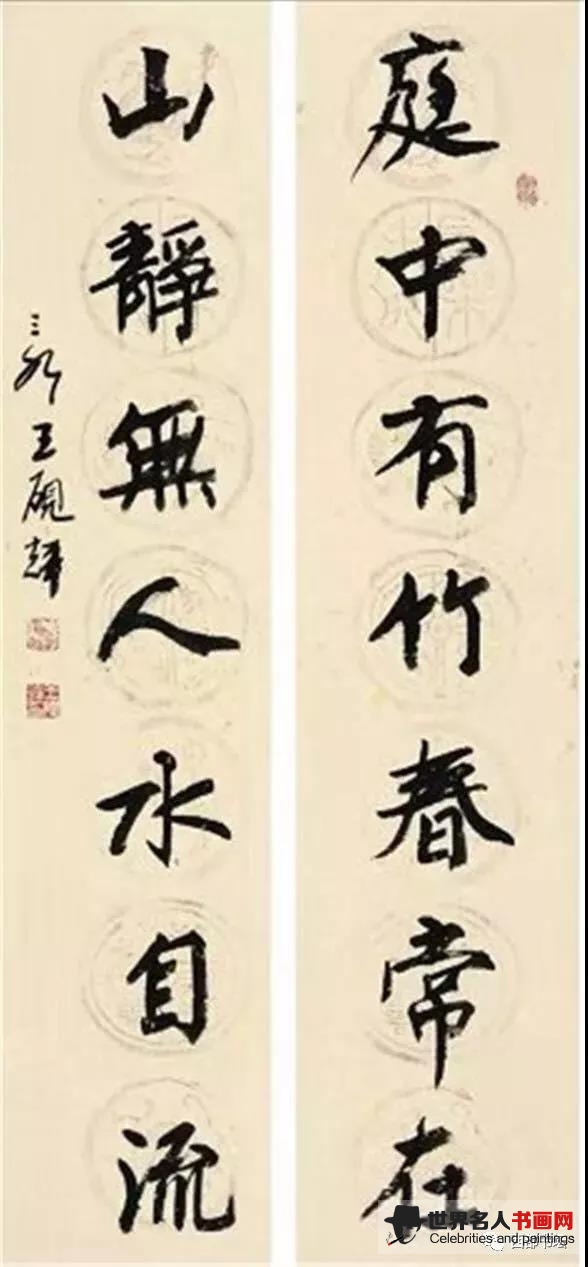 庭中有竹春常在
山靜無人水自流
王硯輝
世界名人书画网
Celebrities and paintings